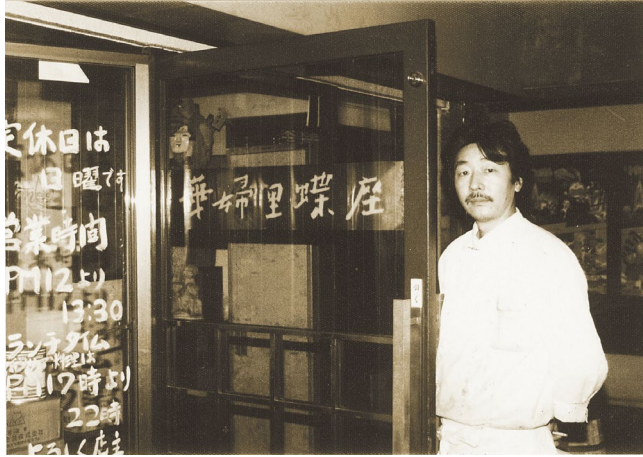 定休日は
日曜です
営業時間
PM12より
13:30
ランチタイム
17時より
22時
よろしく店主
華婦里蝶座
引く